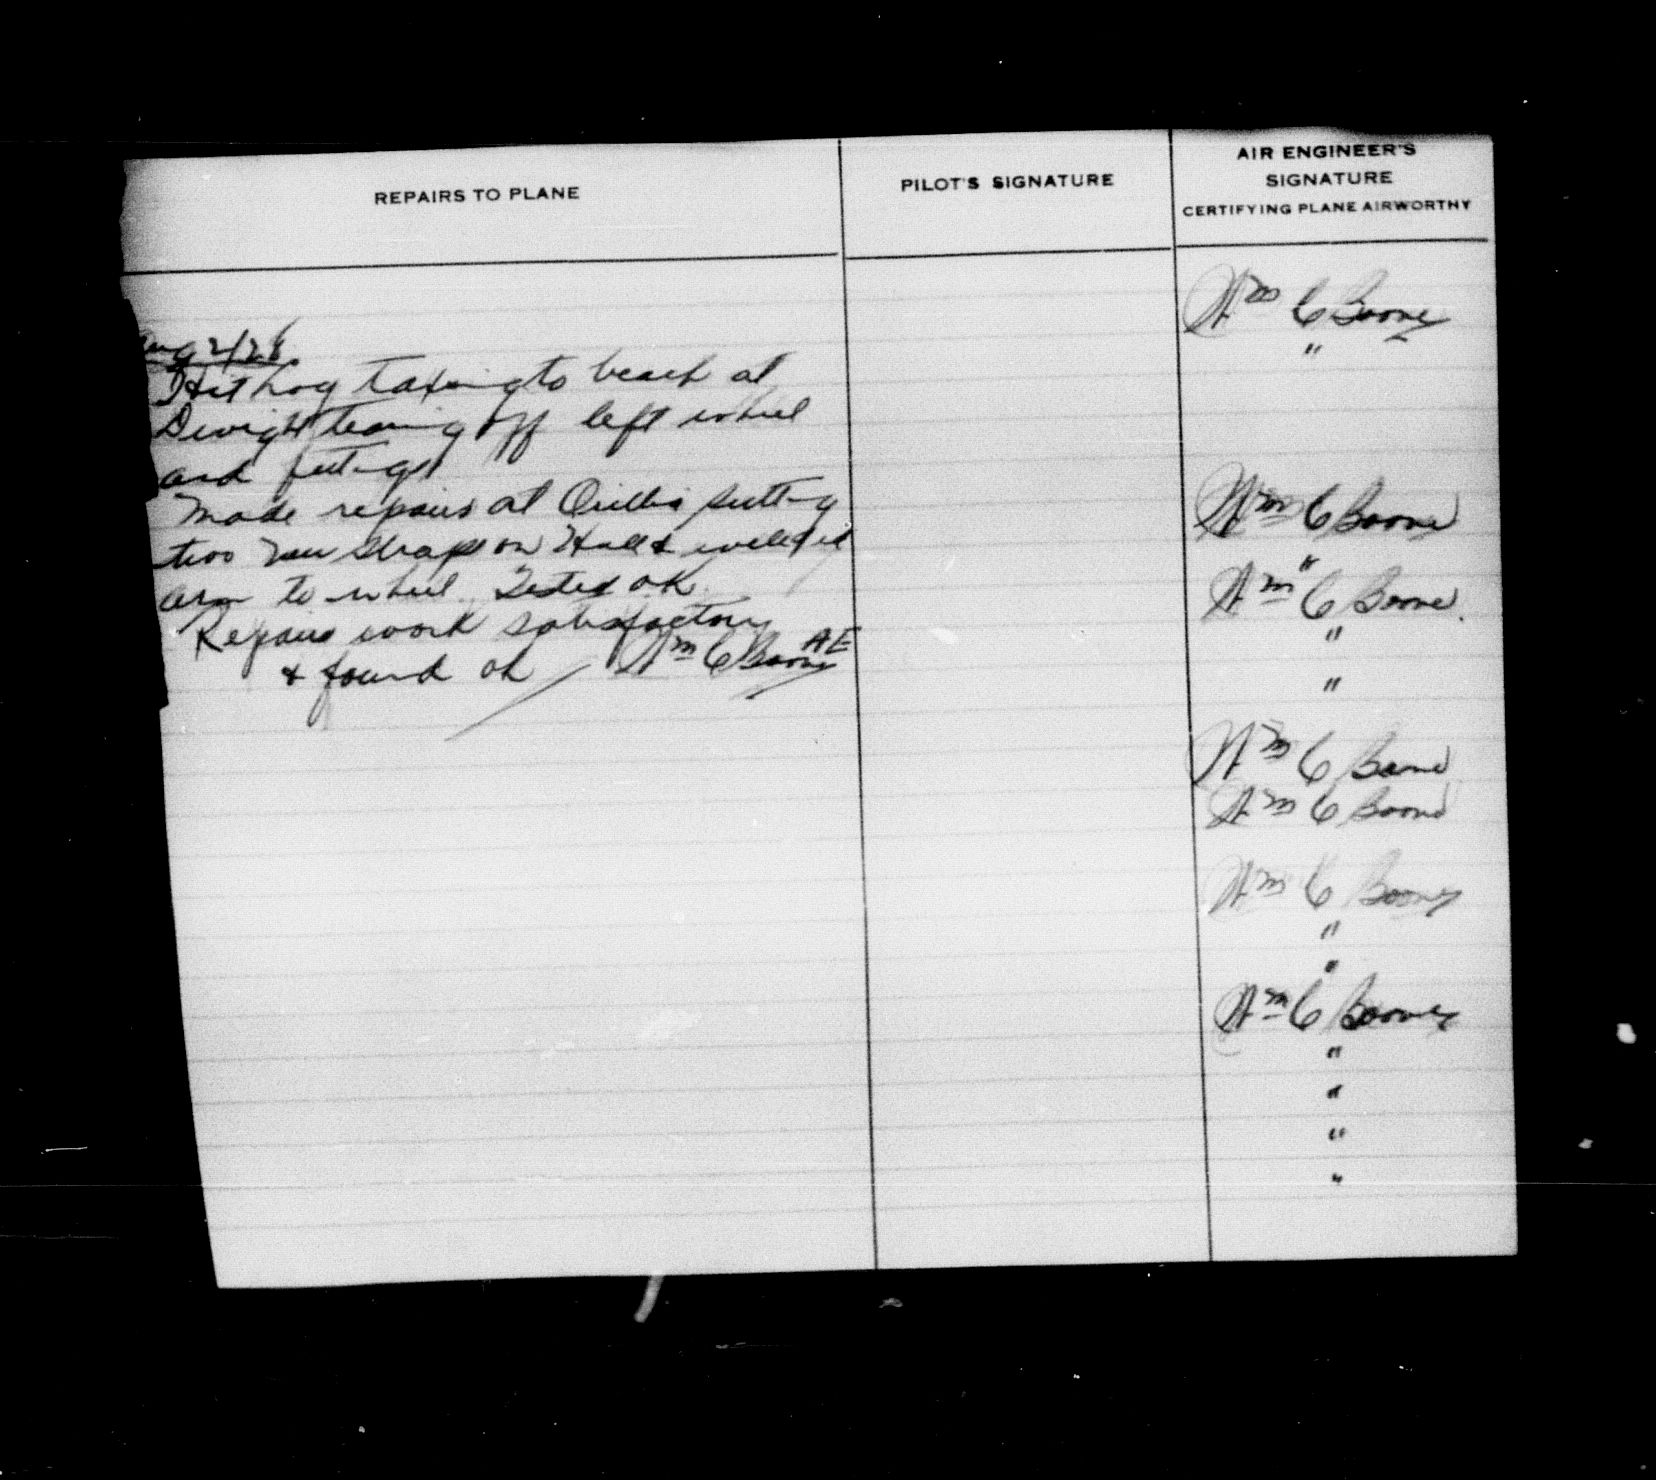 REPAIRS TO PLANE
PILOT'S SIGNATURE
AIR ENGINEER'S
SIGNATURE
CERTIFYING PLANE AIRWORTHY
Aug 2/28.
Hit log taxing to beach at
Dwight tearing off left wheel
and fittings
Made repairs at Orillia putting
two new straps on Hull & welded
arm to wheel. Tested ok.
Repairs work satisfactory
& found ok Wm C Boone AE
Wm C Boone
"
Wm C Boone
"
Wm C Boone.
"
"
Wm C Boone
Wm C Boone
Wm C Boone
"
"
Wm C Boone
"
"
"
"